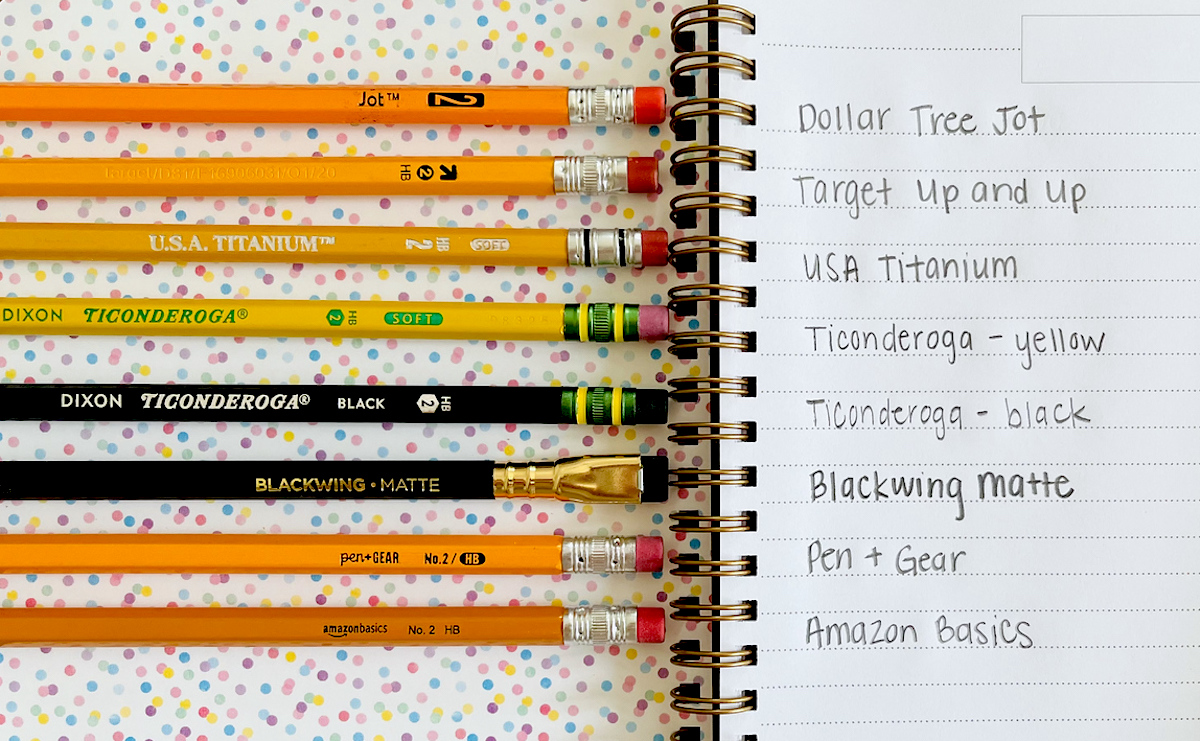 Jot™ 2 Dollar Tree Jot
HB 2 Target Up and Up
U.S.A. TITANIUM™ 2 HB SOFT USA Titanium
DIXON TICONDEROGA® 2 HB SOFT Ticonderoga - yellow
DIXON TICONDEROGA® BLACK 2 HB Ticonderoga - black
BLACKWING • MATTE Blackwing Matte
pen+GEAR No.2 / HB Pen + Gear
amazonbasics No. 2 HB Amazon Basics